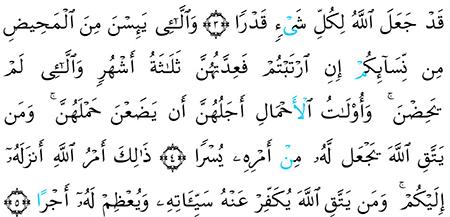 قَدۡ جَعَلَ ٱللَّهُ لِكُلِّ شَيۡءٖ قَدۡرٗا ۝٣ وَٱلَّٰٓـِٔي يَئِسۡنَ مِنَ ٱلۡمَحِيضِ
مِن نِّسَآئِكُمۡ إِنِ ٱرۡتَبۡتُمۡ فَعِدَّتُهُنَّ ثَلَٰثَةُ أَشۡهُرٖ وَٱلَّٰٓـِٔي لَمۡ
يَحِضۡنَۚ وَأُوْلَٰتُ ٱلۡأَحۡمَالِ أَجَلُهُنَّ أَن يَضَعۡنَ حَمۡلَهُنَّۚ وَمَن
يَتَّقِ ٱللَّهَ يَجۡعَل لَّهُۥ مِنۡ أَمۡرِهِۦ يُسۡرٗا ۝٤ ذَٰلِكَ أَمۡرُ ٱللَّهِ أَنزَلَهُۥٓ
إِلَيۡكُمۡۚ وَمَن يَتَّقِ ٱللَّهَ يُكَفِّرۡ عَنۡهُ سَيِّـَٔاتِهِۦ وَيُعۡظِمۡ لَهُۥٓ أَجۡرًا ۝٥